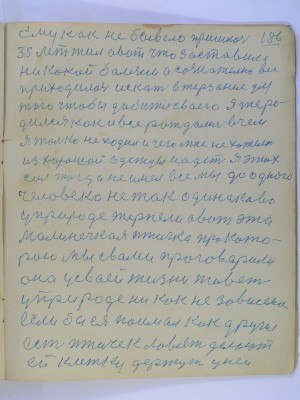 ему как не бывало пришлось 186
35 лет жил а вот что заставило
никакой болезни а сознателно ви
приходилос искат в терзание ум
того чтобы добитса своего я же ро-
дился как и все рождались в чем
я толко не ходил и чего мне не хотело
из хорошой одежды надет я этих
сил тогда не имел все мы до одного
человека не так одинаково
у природе терпели а вот эта
малинечкая птичка про кото-
рою мы с вами проговорили
она у своей жизни живет
у природе ни как не зависела
Если бы ея поимал как други
ест птичек ловят делают
ей клетку держут у ней